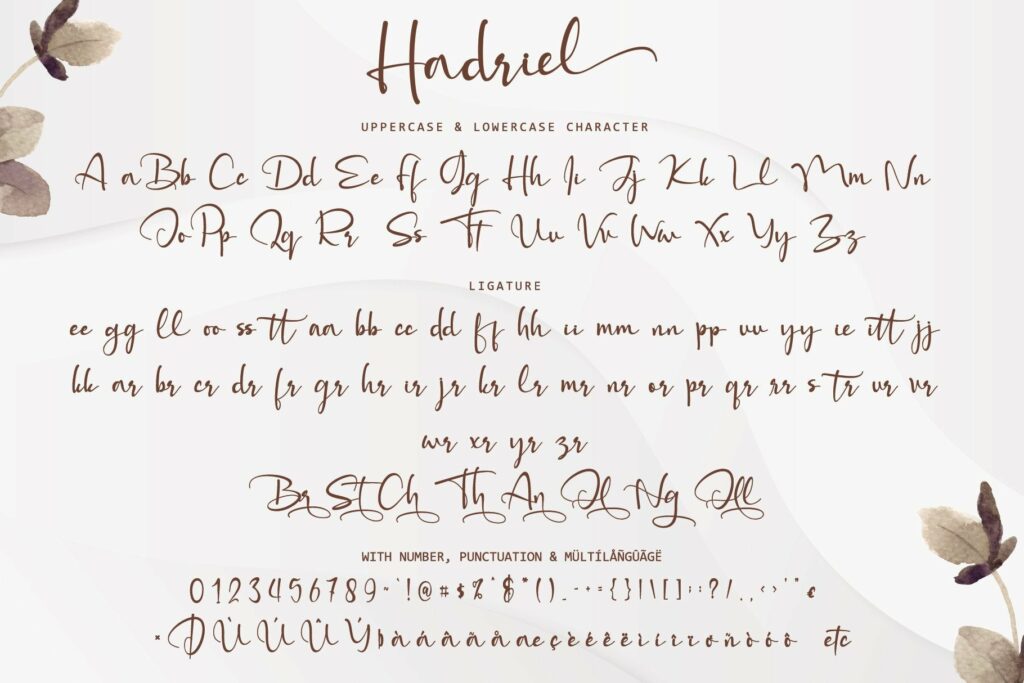 Hadriel
UPPERCASE & LOWERCASE CHARACTER
A a Bb Cc Dd Ee Ff Gg Hh Ii Jj Kk Ll Mm Nn
Oo Pp Qq Rr Ss Tt Uu Vv Ww Xx Yy Zz
LIGATURE
ee gg ll oo ss tt aa bb cc dd ff hh ii mm nn pp uu yy ie itt jj
kk ar br cr dr fr gr hr ir jr kr lr mr nr or pr qr rr s tr ur vr
wr xr yr zr
Br St Ch Th An Ng
WITH NUMBER, PUNCTUATION & MÜLTÍLÅÑGÛÃGË
0123456789~`!@#$%^&*()_-+={}|\[]:;?/.,‹›'"€
* Ð Ù Ú Û Ý þ à á â ã ä å ae ç è é ê ë ì í î ï o ñ ò ó ô etc